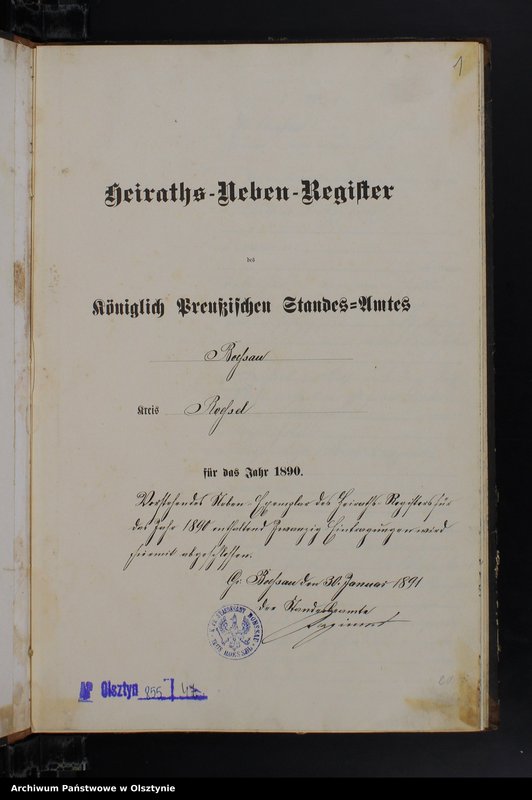 1
Heiraths-Neben-Register
des
Königlich Preußischen Standes-Amtes
Bössau
Kreis Rößel
für das Jahr 1890.
Vorstehendes Neben-Exemplar des Heiraths-Registers für
das Jahr 1890 enthaltend zwanzig Eintragungen wird
hiermit abgeschlossen.
Gr. Bössau den 30. Januar 1891
der Standesbeamte
AP Olsztyn 255 / 47
Archiwum Państwowe w Olsztynie